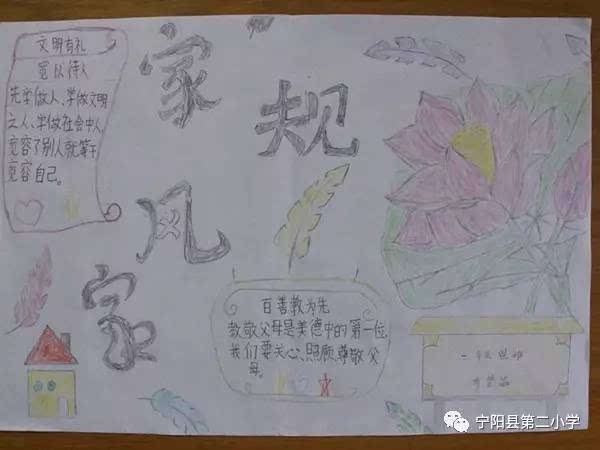 文明有礼
宽以待人
先学做人,学做文明
之人、学做社会中人,
宽容了别人就等于
宽容自己。
家规
家风
百善教为先
教敬父母是美德中的第一位,
我们要关心、照顾、尊敬父
母。
宁阳县第二小学